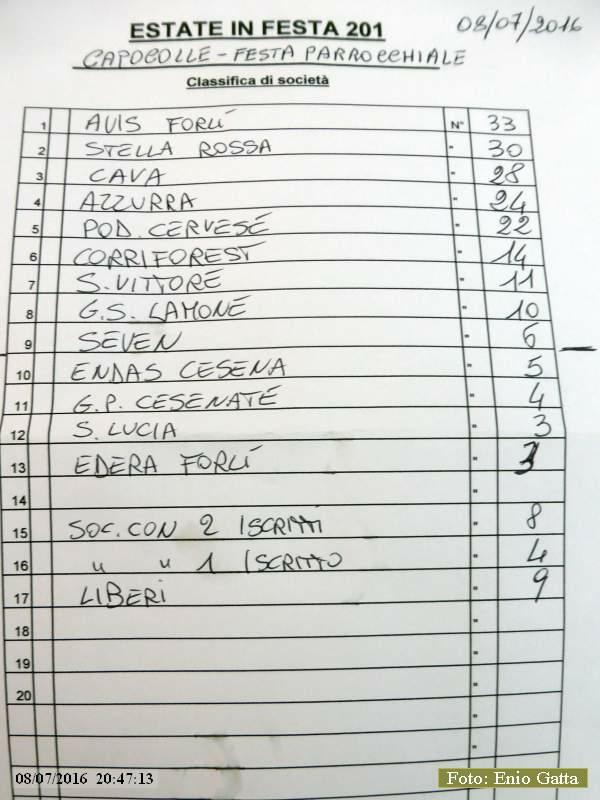 ESTATE IN FESTA 201 08/07/2016
CAPOCOLLE - FESTA PARROCCHIALE
Classifica di società
1 AVIS FORLÍ N° 33
2 STELLA ROSSA " 30
3 CAVA " 28
4 AZZURRA " 24
5 POD. CERVESE " 22
6 CORRIFOREST " 14
7 S. VITTORE " 11
8 G.S. LAMONE " 10
9 SEVEN " 6
10 ENDAS CESENA " 5
11 G.P. CESENATE " 4
12 S. LUCIA " 3
13 EDERA FORLÍ " 3
14 "
15 SOC. CON 2 ISCRITTI " 8
16 " " 1 ISCRITTO " 4
17 LIBERI " 9
18 "
19 "
20 "
"
"
08/07/2016 20:47:13
Foto: Enio Gatta